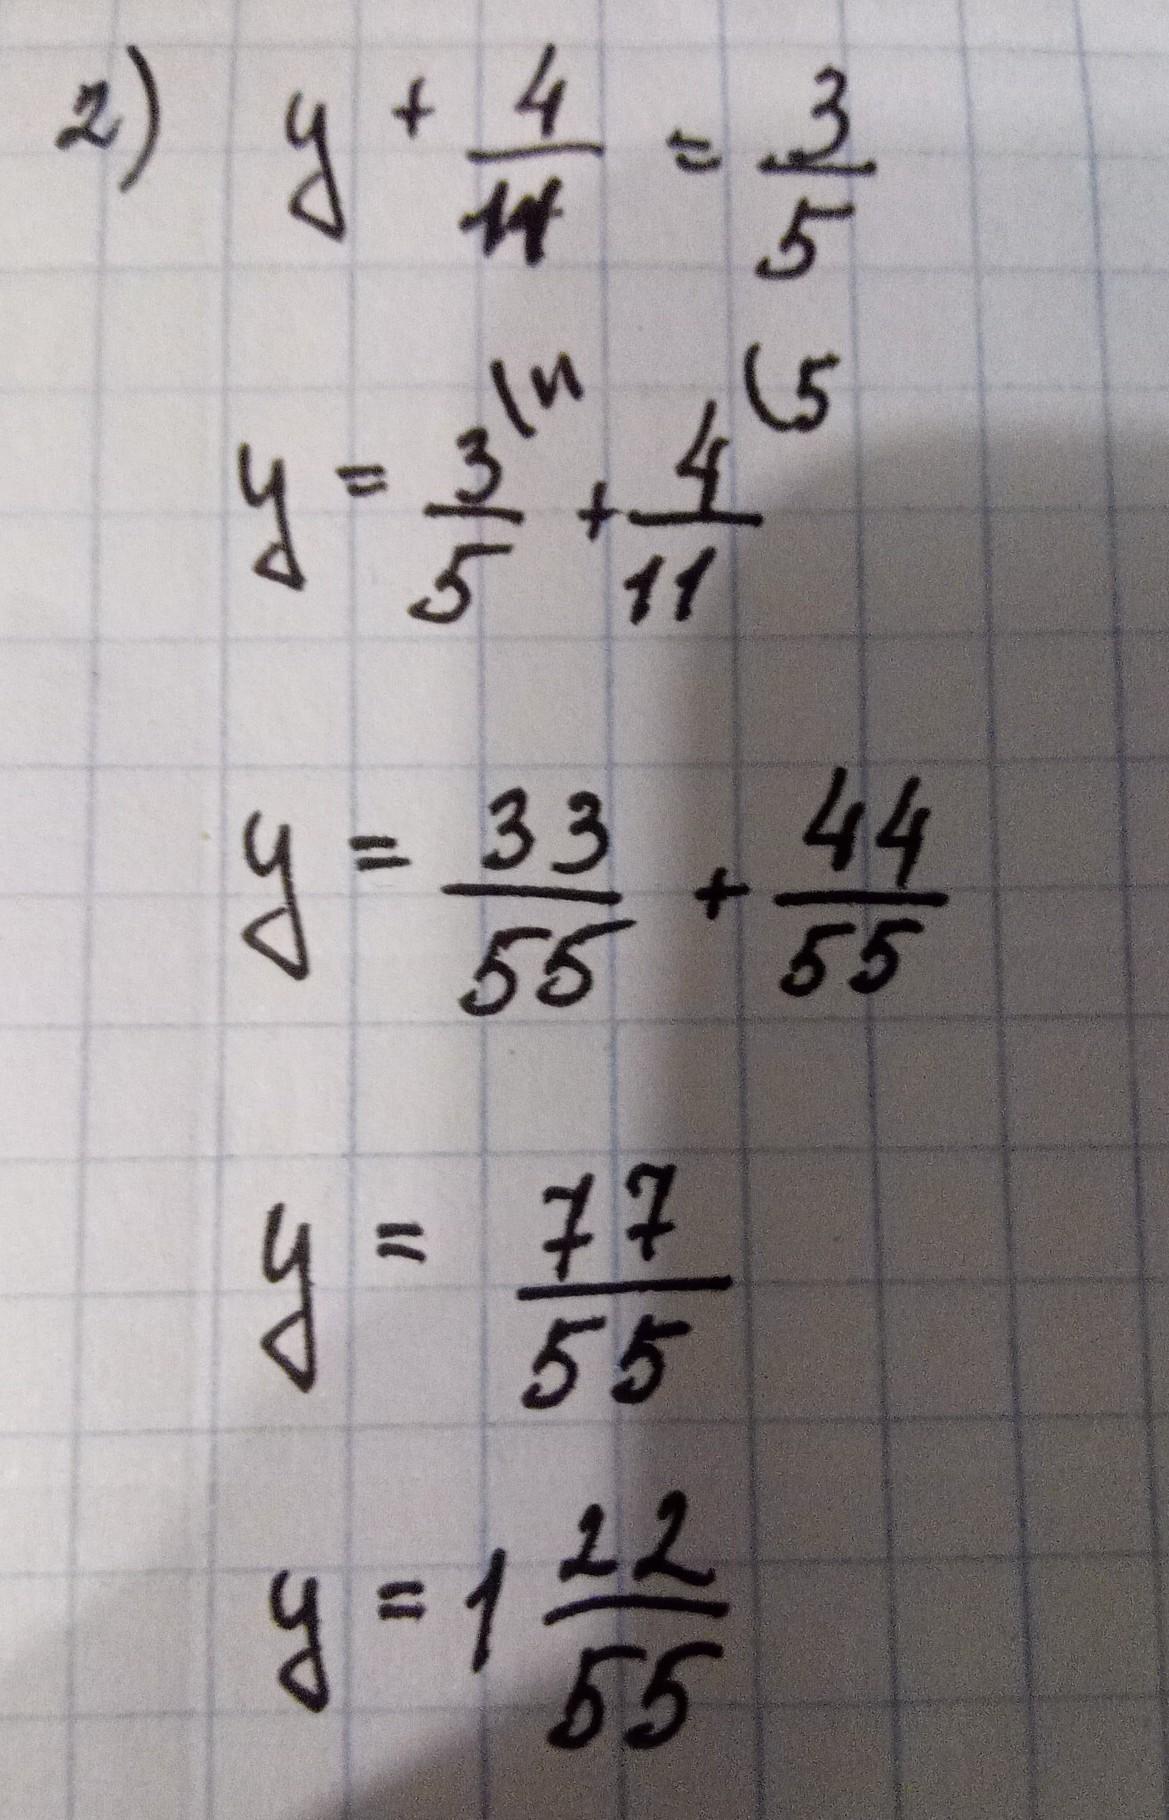 2) y + 4/11 = 3/5
y = 3/5 \11 + 4/11 (5
y = 33/55 + 44/55
y = 77/55
y = 1 22/55